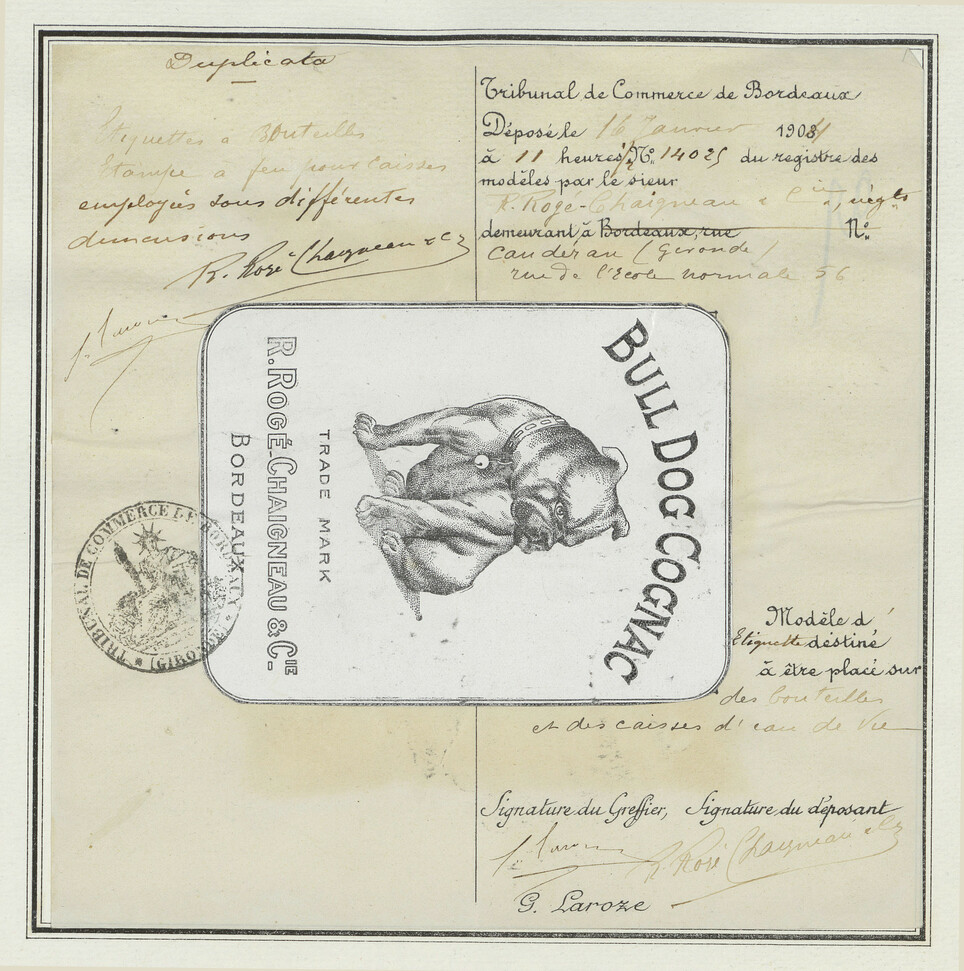 Duplicata
Etiquettes à Bouteilles
Etampe à feu pour caisses
employés sous différentes
dimensions
R. Rogé-Chaigneau & Cie
Tribunal de Commerce de Bordeaux
Déposé le 16 Janvier 1904
à 11 heures No. 14025 du registre des
modèles par le sieur
R. Rogé-Chaigneau & Cie, négts
demeurant à Bordeaux, rue No.
Caudéran (Gironde)
rue de l'Ecole normale 56
BULL DOG COGNAC
TRADE MARK
R. ROGÉ-CHAIGNEAU & CIE
BORDEAUX
TRIBUNAL DE COMMERCE DE BORDEAUX
* (GIRONDE) *
Modèle d'
Etiquette déstiné
à être placé sur
des bouteilles
et des caisses d'eau de Vie
Signature du Greffier, Signature du déposant
R. Rogé Chaigneau & Cie
G. Laroze